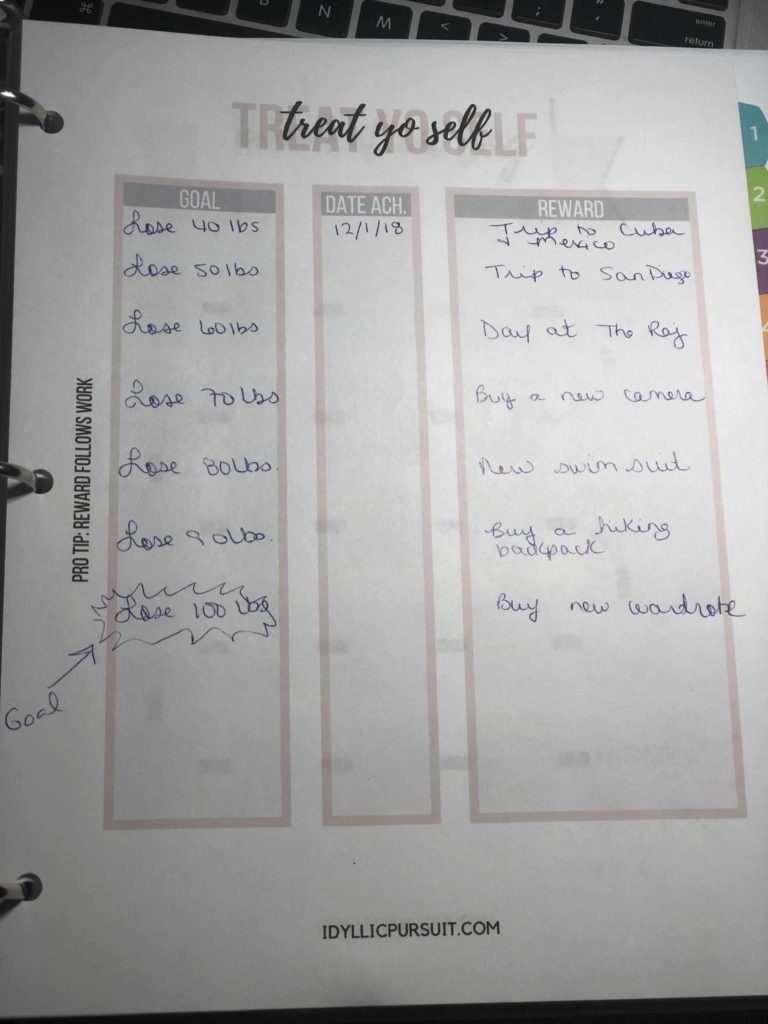 N
M
<
>
;
enter
return
TREAT YO SELF
treat yo self
GOAL DATE ACH. REWARD
Lose 40 lbs 12/1/18 Trip to Cuba
+ Mexico
Lose 50 lbs Trip to San Diego
Lose 60 lbs Day at The Raj
Lose 70 Lbs Buy a new camera
Lose 80 Lbs. New swim suit
Lose 90 Lbs. Buy a hiking
backpack
Lose 100 Lbs Buy new wardrobe
Goal
PRO TIP: REWARD FOLLOWS WORK
1
2
3
4
IDYLLICPURSUIT.COM